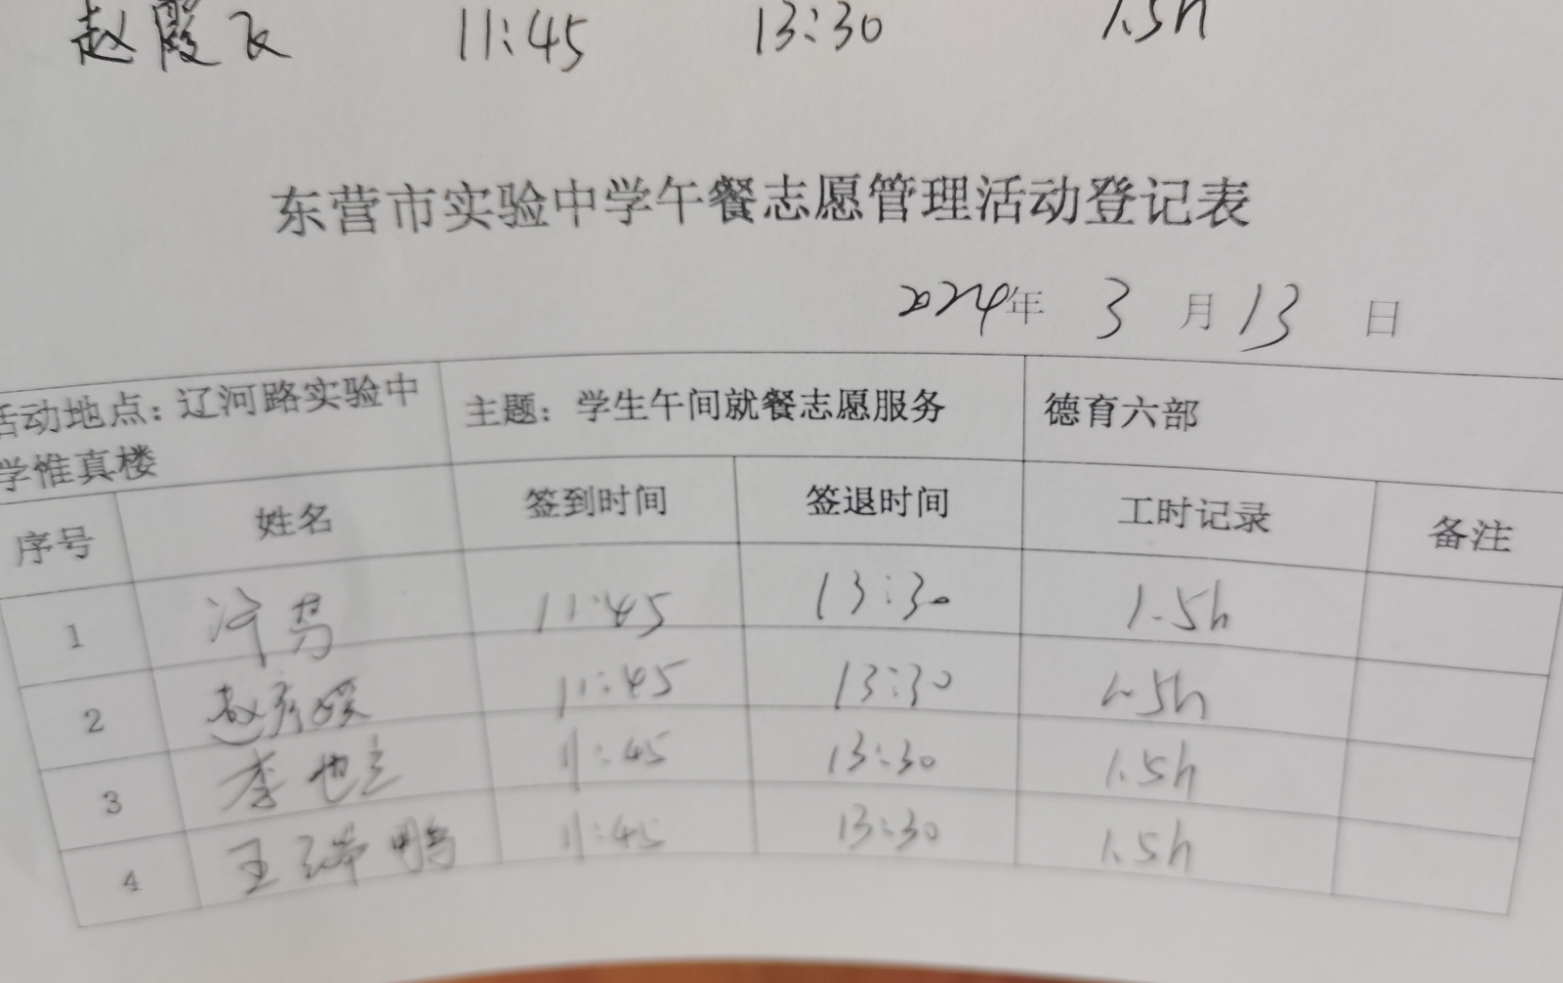 赵霞飞 11:45 13:30 1.5h
东营市实验中学午餐志愿管理活动登记表
2024年 3 月 13 日
活动地点：辽河路实验中 主题：学生午间就餐志愿服务 德育六部
学惟真楼
序号 姓名 签到时间 签退时间 工时记录 备注
1 11:45 13:30 1.5h
2 赵 11:45 13:30 1.5h
3 李 11:45 13:30 1.5h
4 王瑞鹏 11:45 13:30 1.5h